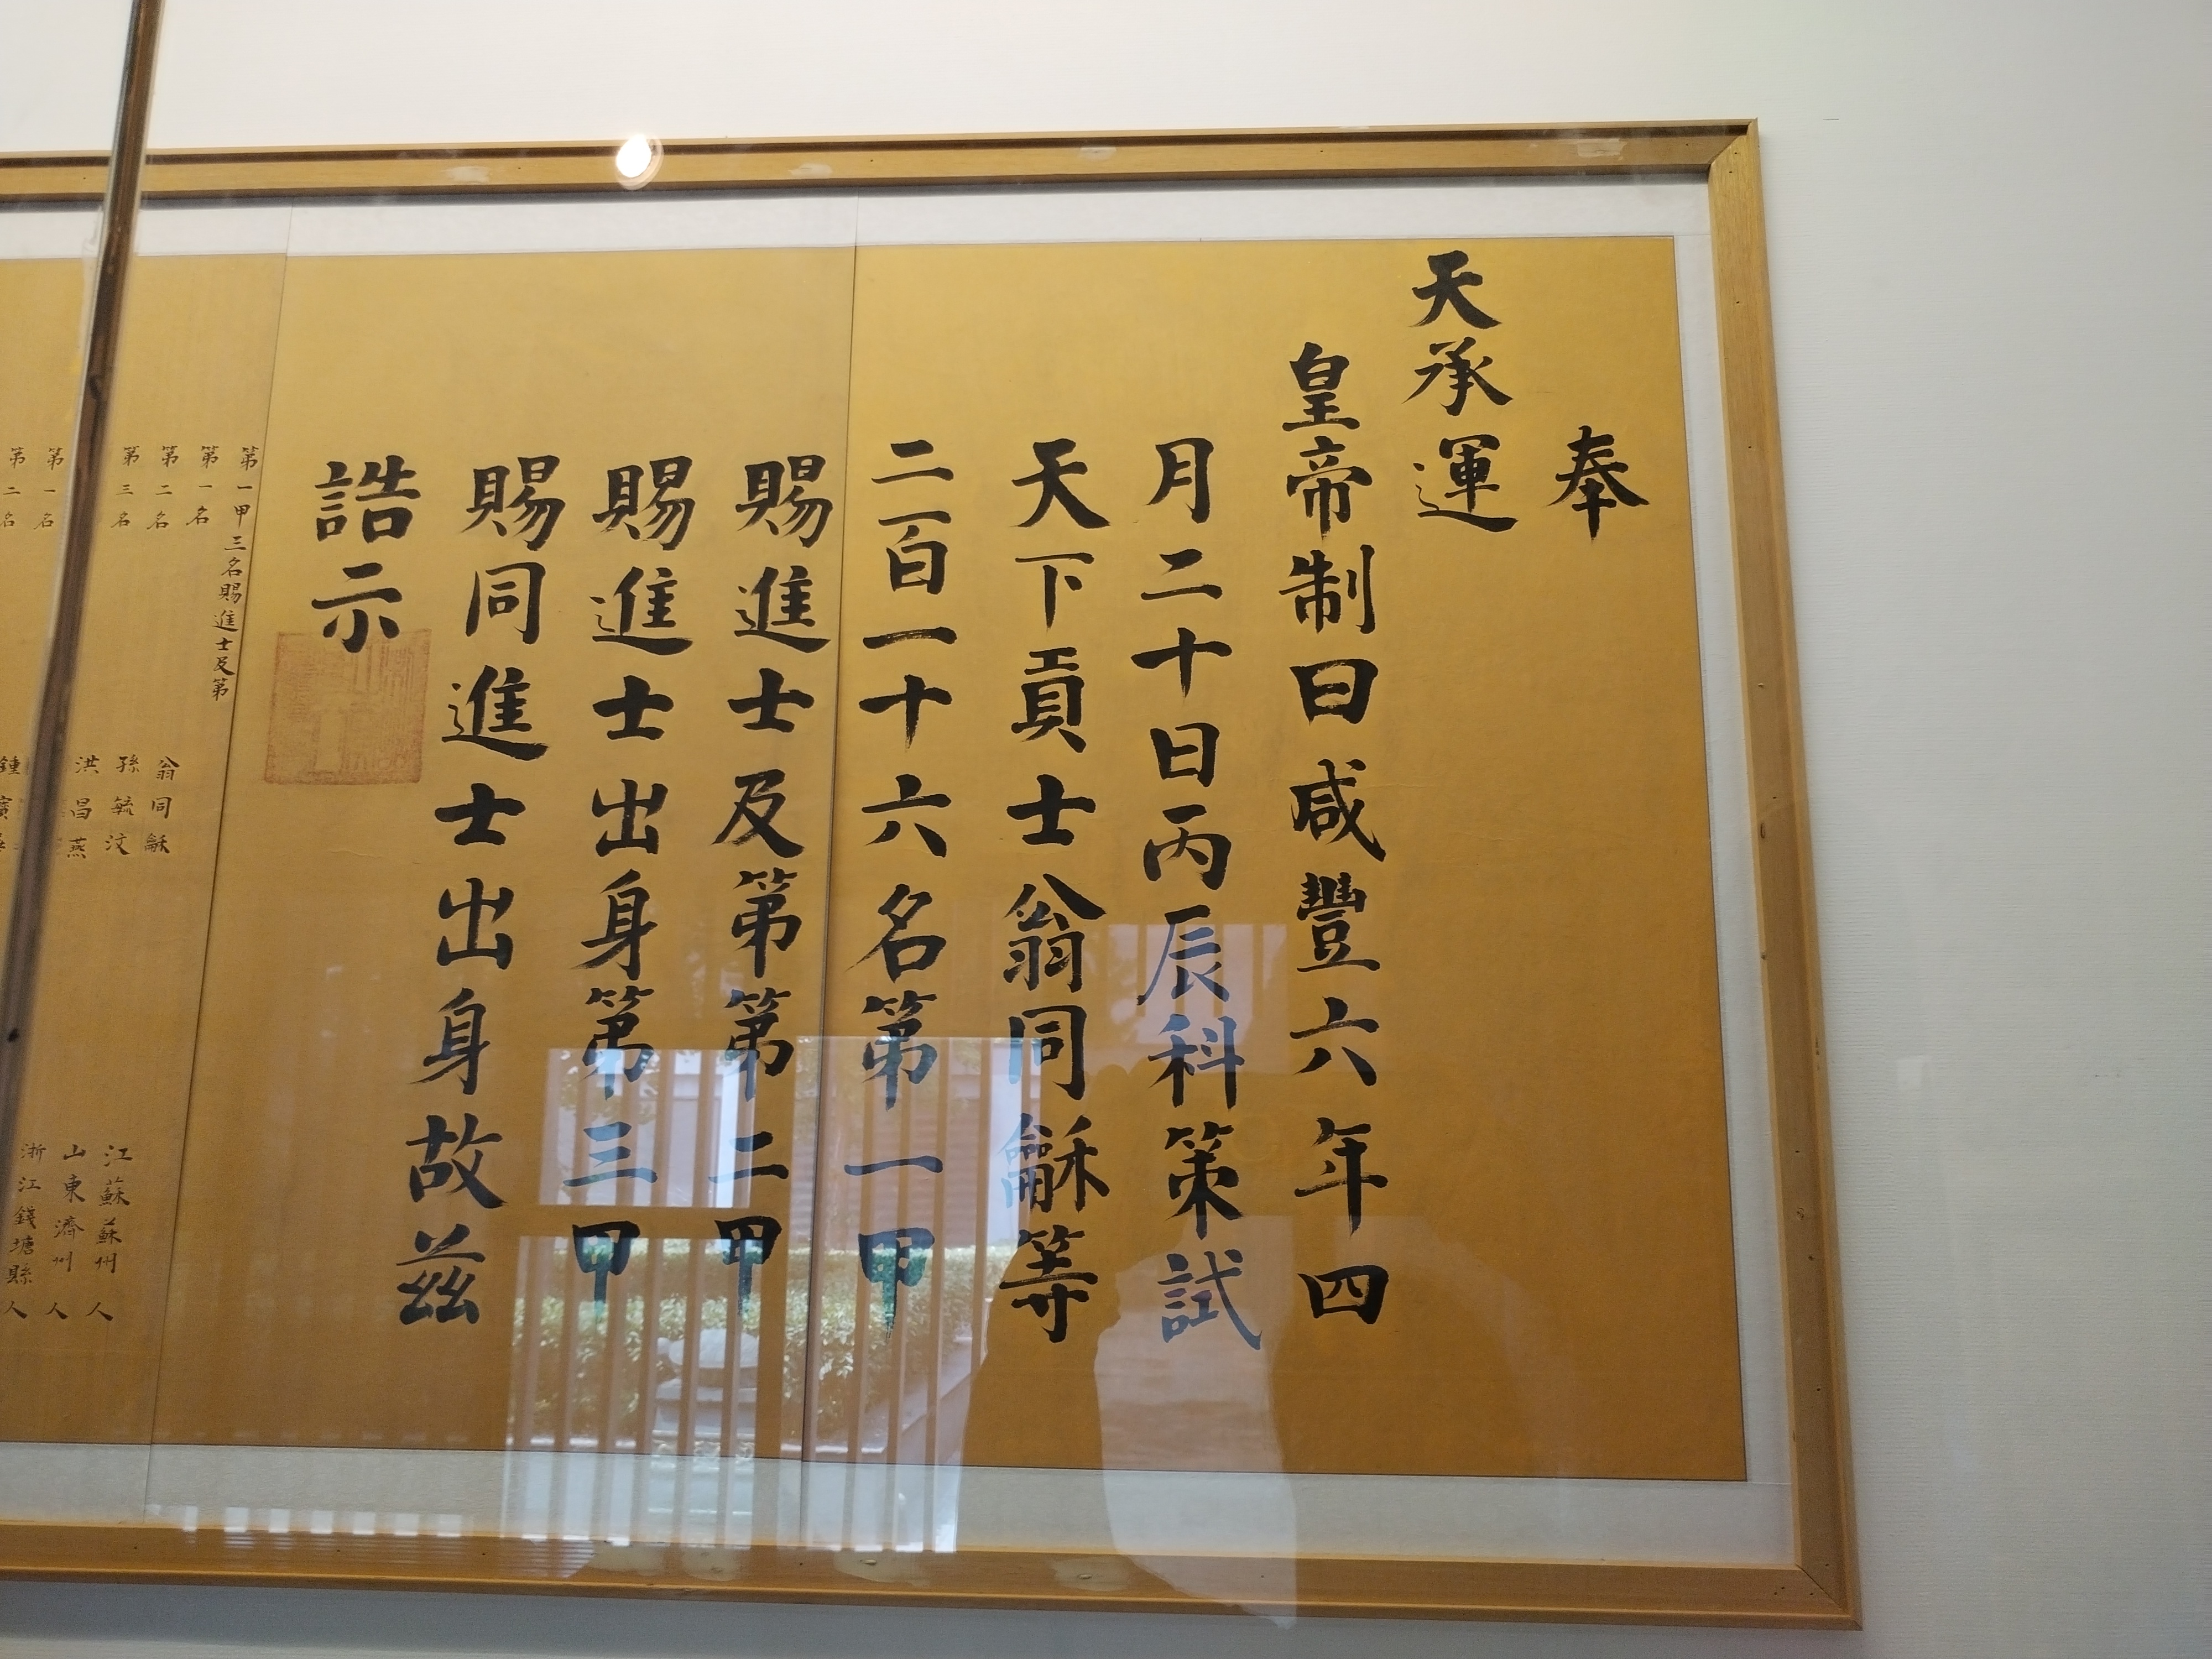 奉
天承運
皇帝制曰咸豐六年四
月二十日丙辰科策試
天下貢士翁同龢等
二百一十六名第一甲
賜進士及第第二甲
賜進士出身第三甲
賜同進士出身故茲
誥示
第一甲三名賜進士及第
第一名 翁同龢 江蘇蘇州人
第二名 孫毓汶 山東濟州人
第三名 洪昌燕 浙江錢塘縣人
第一名 鍾
第二名